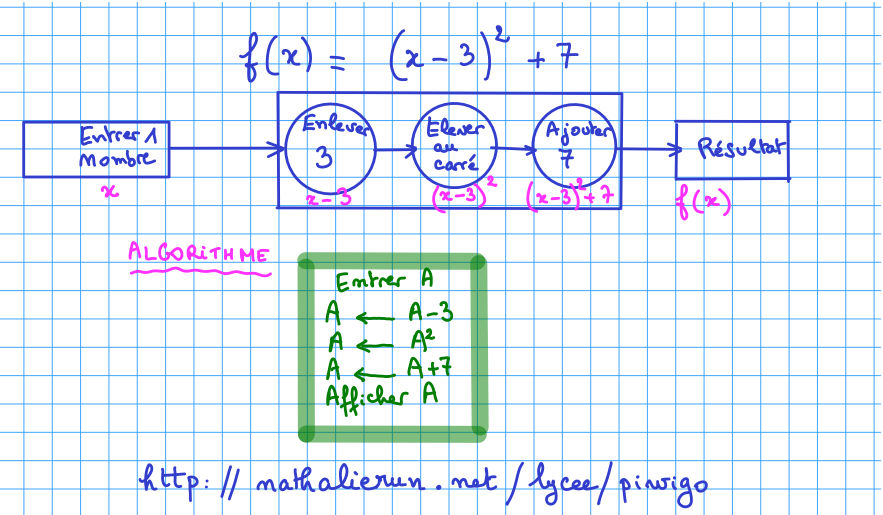 f(x) = (x-3)² + 7
Entrer 1
nombre
x
Enlever
3
x-3
Elever
au
carré
(x-3)²
Ajouter
7
(x-3)²+7
Résultat
f(x)
ALGORITHME
Entrer A
A ← A-3
A ← A²
A ← A+7
Afficher A
http://nathalierun.net/lycee/piwigo